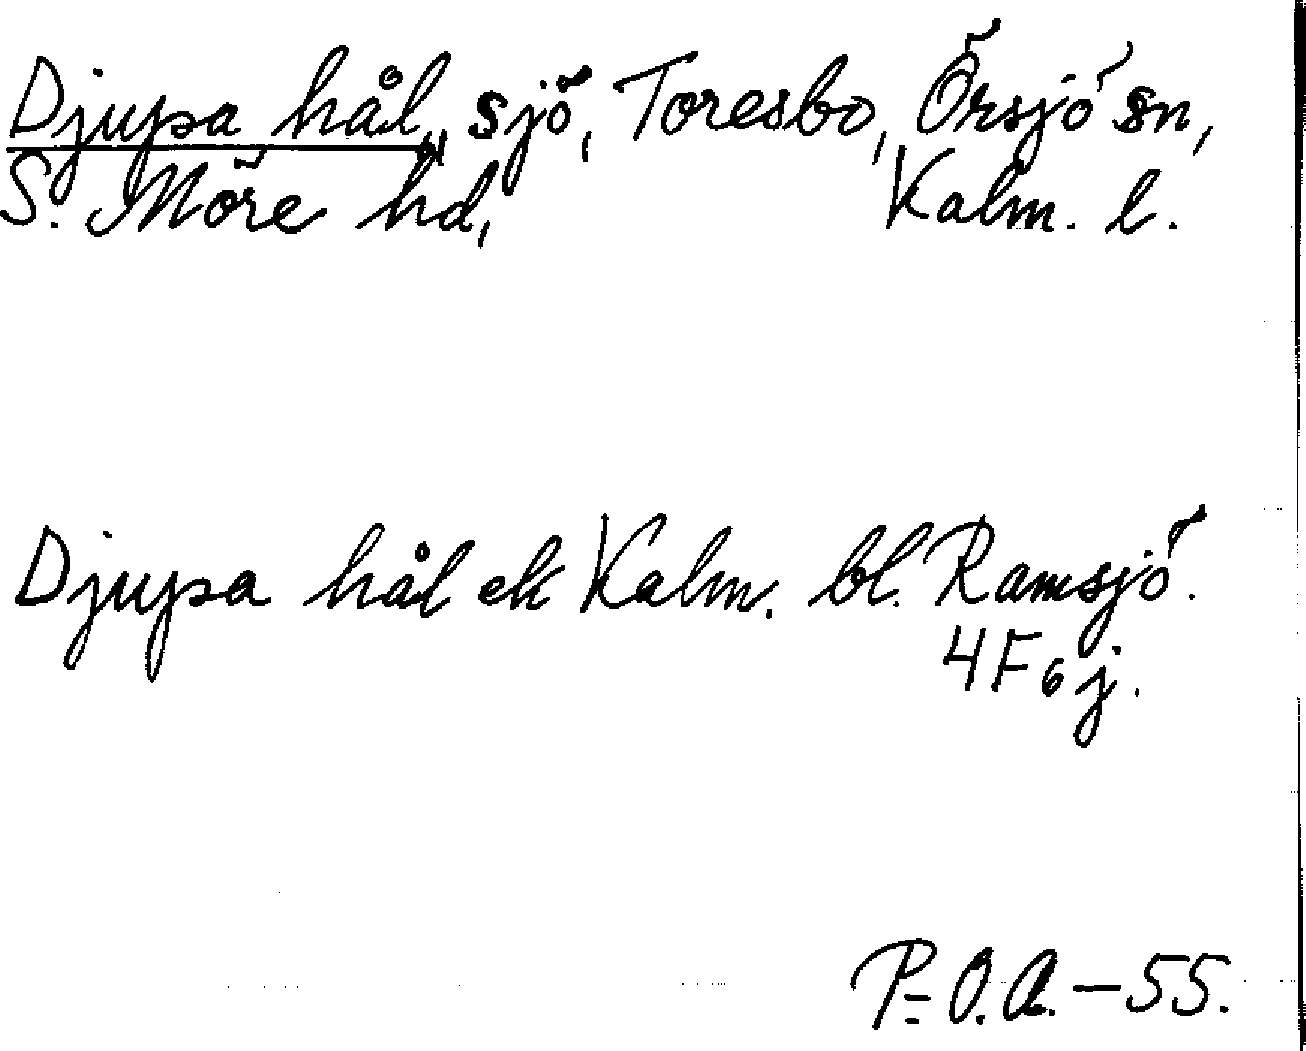 Djupa hål, sjö, Toresbo, Örsjö sn,
S. Möre hd, Kalm. l.
Djupa hål ek Kalm. bl. Ramsjö.
4F6j.
P-O.A.-55.